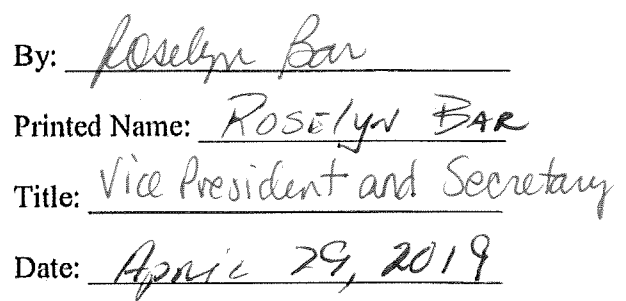 By: Roselyn Bar
Printed Name: Roselyn Bar
Title: Vice President and Secretary
Date: April 29, 2019